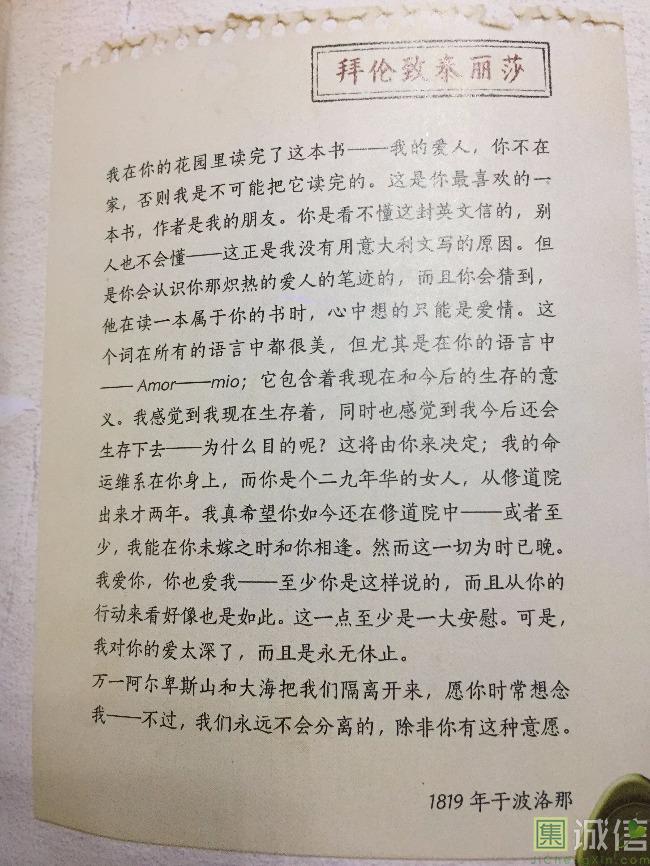 拜伦致泰丽莎
我在你的花园里读完了这本书——我的爱人，你不在
家，否则我是不可能把它读完的。这是你最喜欢的一
本书，作者是我的朋友。你是看不懂这封英文信的，别
人也不会懂——这正是我没有用意大利文写的原因。但
是你会认识你那炽热的爱人的笔迹的，而且你会猜到，
他在读一本属于你的书时，心中想的只能是爱情。这
个词在所有的语言中都很美，但尤其是在你的语言中
——Amor——mio；它包含着我现在和今后的生存的意
义。我感觉到我现在生存着，同时也感觉到我今后还会
生存下去——为什么目的呢？这将由你来决定；我的命
运维系在你身上，而你是个二九年华的女人，从修道院
出来才两年。我真希望你如今还在修道院中——或者至
少，我能在你未嫁之时和你相逢。然而这一切为时已晚。
我爱你，你也爱我——至少你是这样说的，而且从你的
行动来看好像也是如此。这一点至少是一大安慰。可是，
我对你的爱太深了，而且是永无休止。
万一阿尔卑斯山和大海把我们隔离开来，愿你时常想念
我——不过，我们永远不会分离的，除非你有这种意愿。
1819 年于波洛那
集诚信
jiChengxin.com